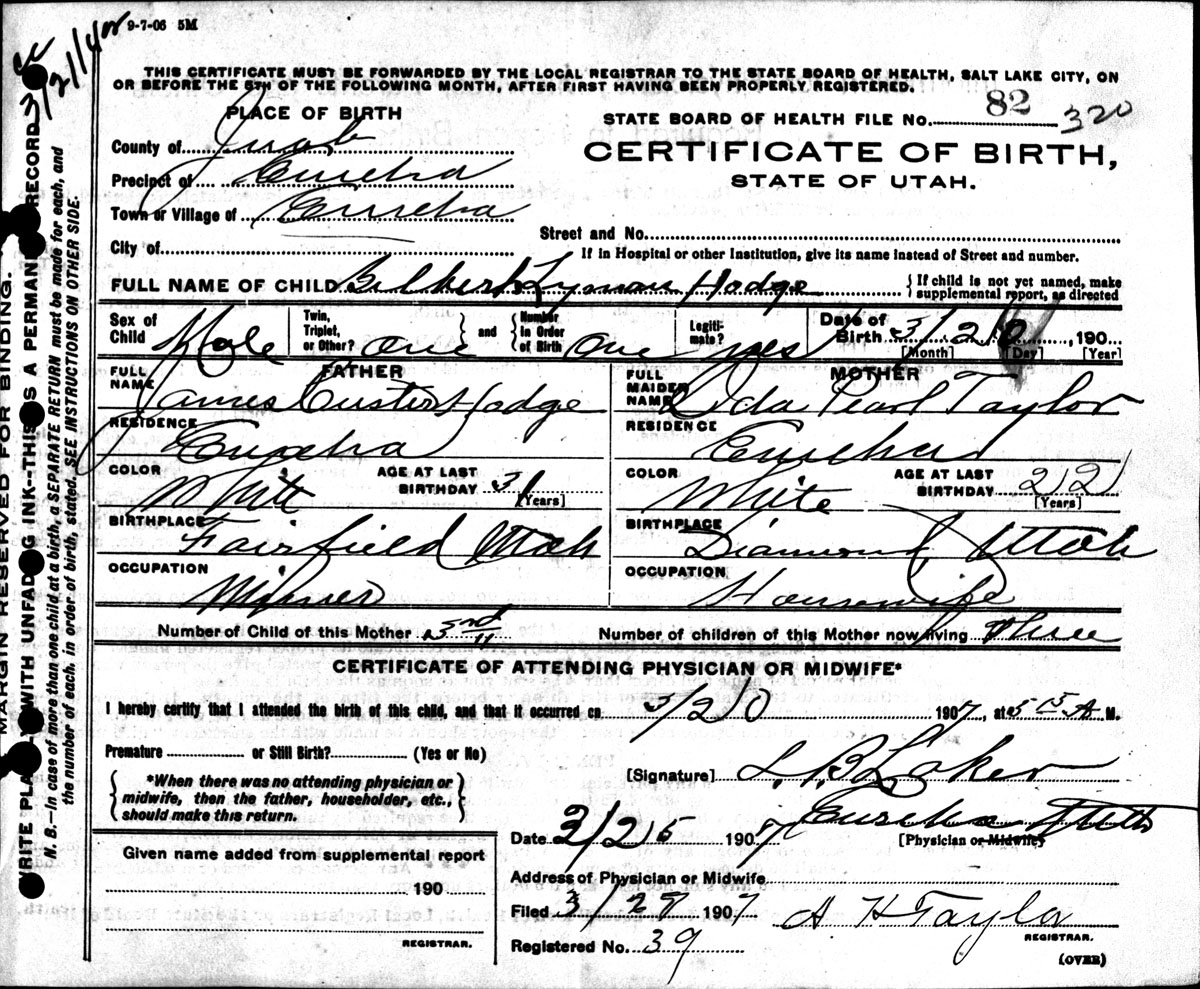 9-7-06 5M
3/21/42
THIS CERTIFICATE MUST BE FORWARDED BY THE LOCAL REGISTRAR TO THE STATE BOARD OF HEALTH, SALT LAKE CITY, ON
OR BEFORE THE 5TH OF THE FOLLOWING MONTH, AFTER FIRST HAVING BEEN PROPERLY REGISTERED.
PLACE OF BIRTH
STATE BOARD OF HEALTH FILE No. 82 320
County of Juab
CERTIFICATE OF BIRTH,
Precinct of Eureka
STATE OF UTAH.
Town or Village of Eureka
Street and No.
City of
If in Hospital or other Institution, give its name instead of Street and number.
FULL NAME OF CHILD Gilbert Lyman Hodge
If child is not yet named, make supplemental report, as directed
Sex of Child Male
Twin, Triplet, or Other? one
and Number in Order of Birth one
Legitimate? yes
Date of Birth 3/20, 190
[Month] [Day] [Year]
FATHER
FULL NAME James Custer Hodge
RESIDENCE Eureka
COLOR White
AGE AT LAST BIRTHDAY 31 [Years]
BIRTHPLACE Fairfield Utah
OCCUPATION Miner
MOTHER
FULL MAIDEN NAME Lida Pearl Taylor
RESIDENCE Eureka
COLOR White
AGE AT LAST BIRTHDAY 22 [Years]
BIRTHPLACE Diamond Utah
OCCUPATION Housewife
Number of Child of this Mother 3rd
Number of children of this Mother now living Three
CERTIFICATE OF ATTENDING PHYSICIAN OR MIDWIFE*
I hereby certify that I attended the birth of this child, and that it occurred on 3/20 1907, at 5 15 A M.
Premature or Still Birth? (Yes or No)
*When there was no attending physician or
midwife, then the father, householder, etc.,
should make this return.
[Signature] L. B. Laker
Eureka Utah
Date 3/25 1907 [Physician or Midwife]
Given name added from supplemental report
190
REGISTRAR.
Address of Physician or Midwife
Filed 3/27 1907 A H Taylor
REGISTRAR.
Registered No. 39
(OVER)
MARGIN RESERVED FOR BINDING.
WRITE PLAINLY WITH UNFADING INK--THIS IS A PERMANENT RECORD
N. B.—In case of more than one child at a birth, a SEPARATE RETURN must be made for each, and
the number of each, in order of birth, stated. SEE INSTRUCTIONS ON OTHER SIDE.